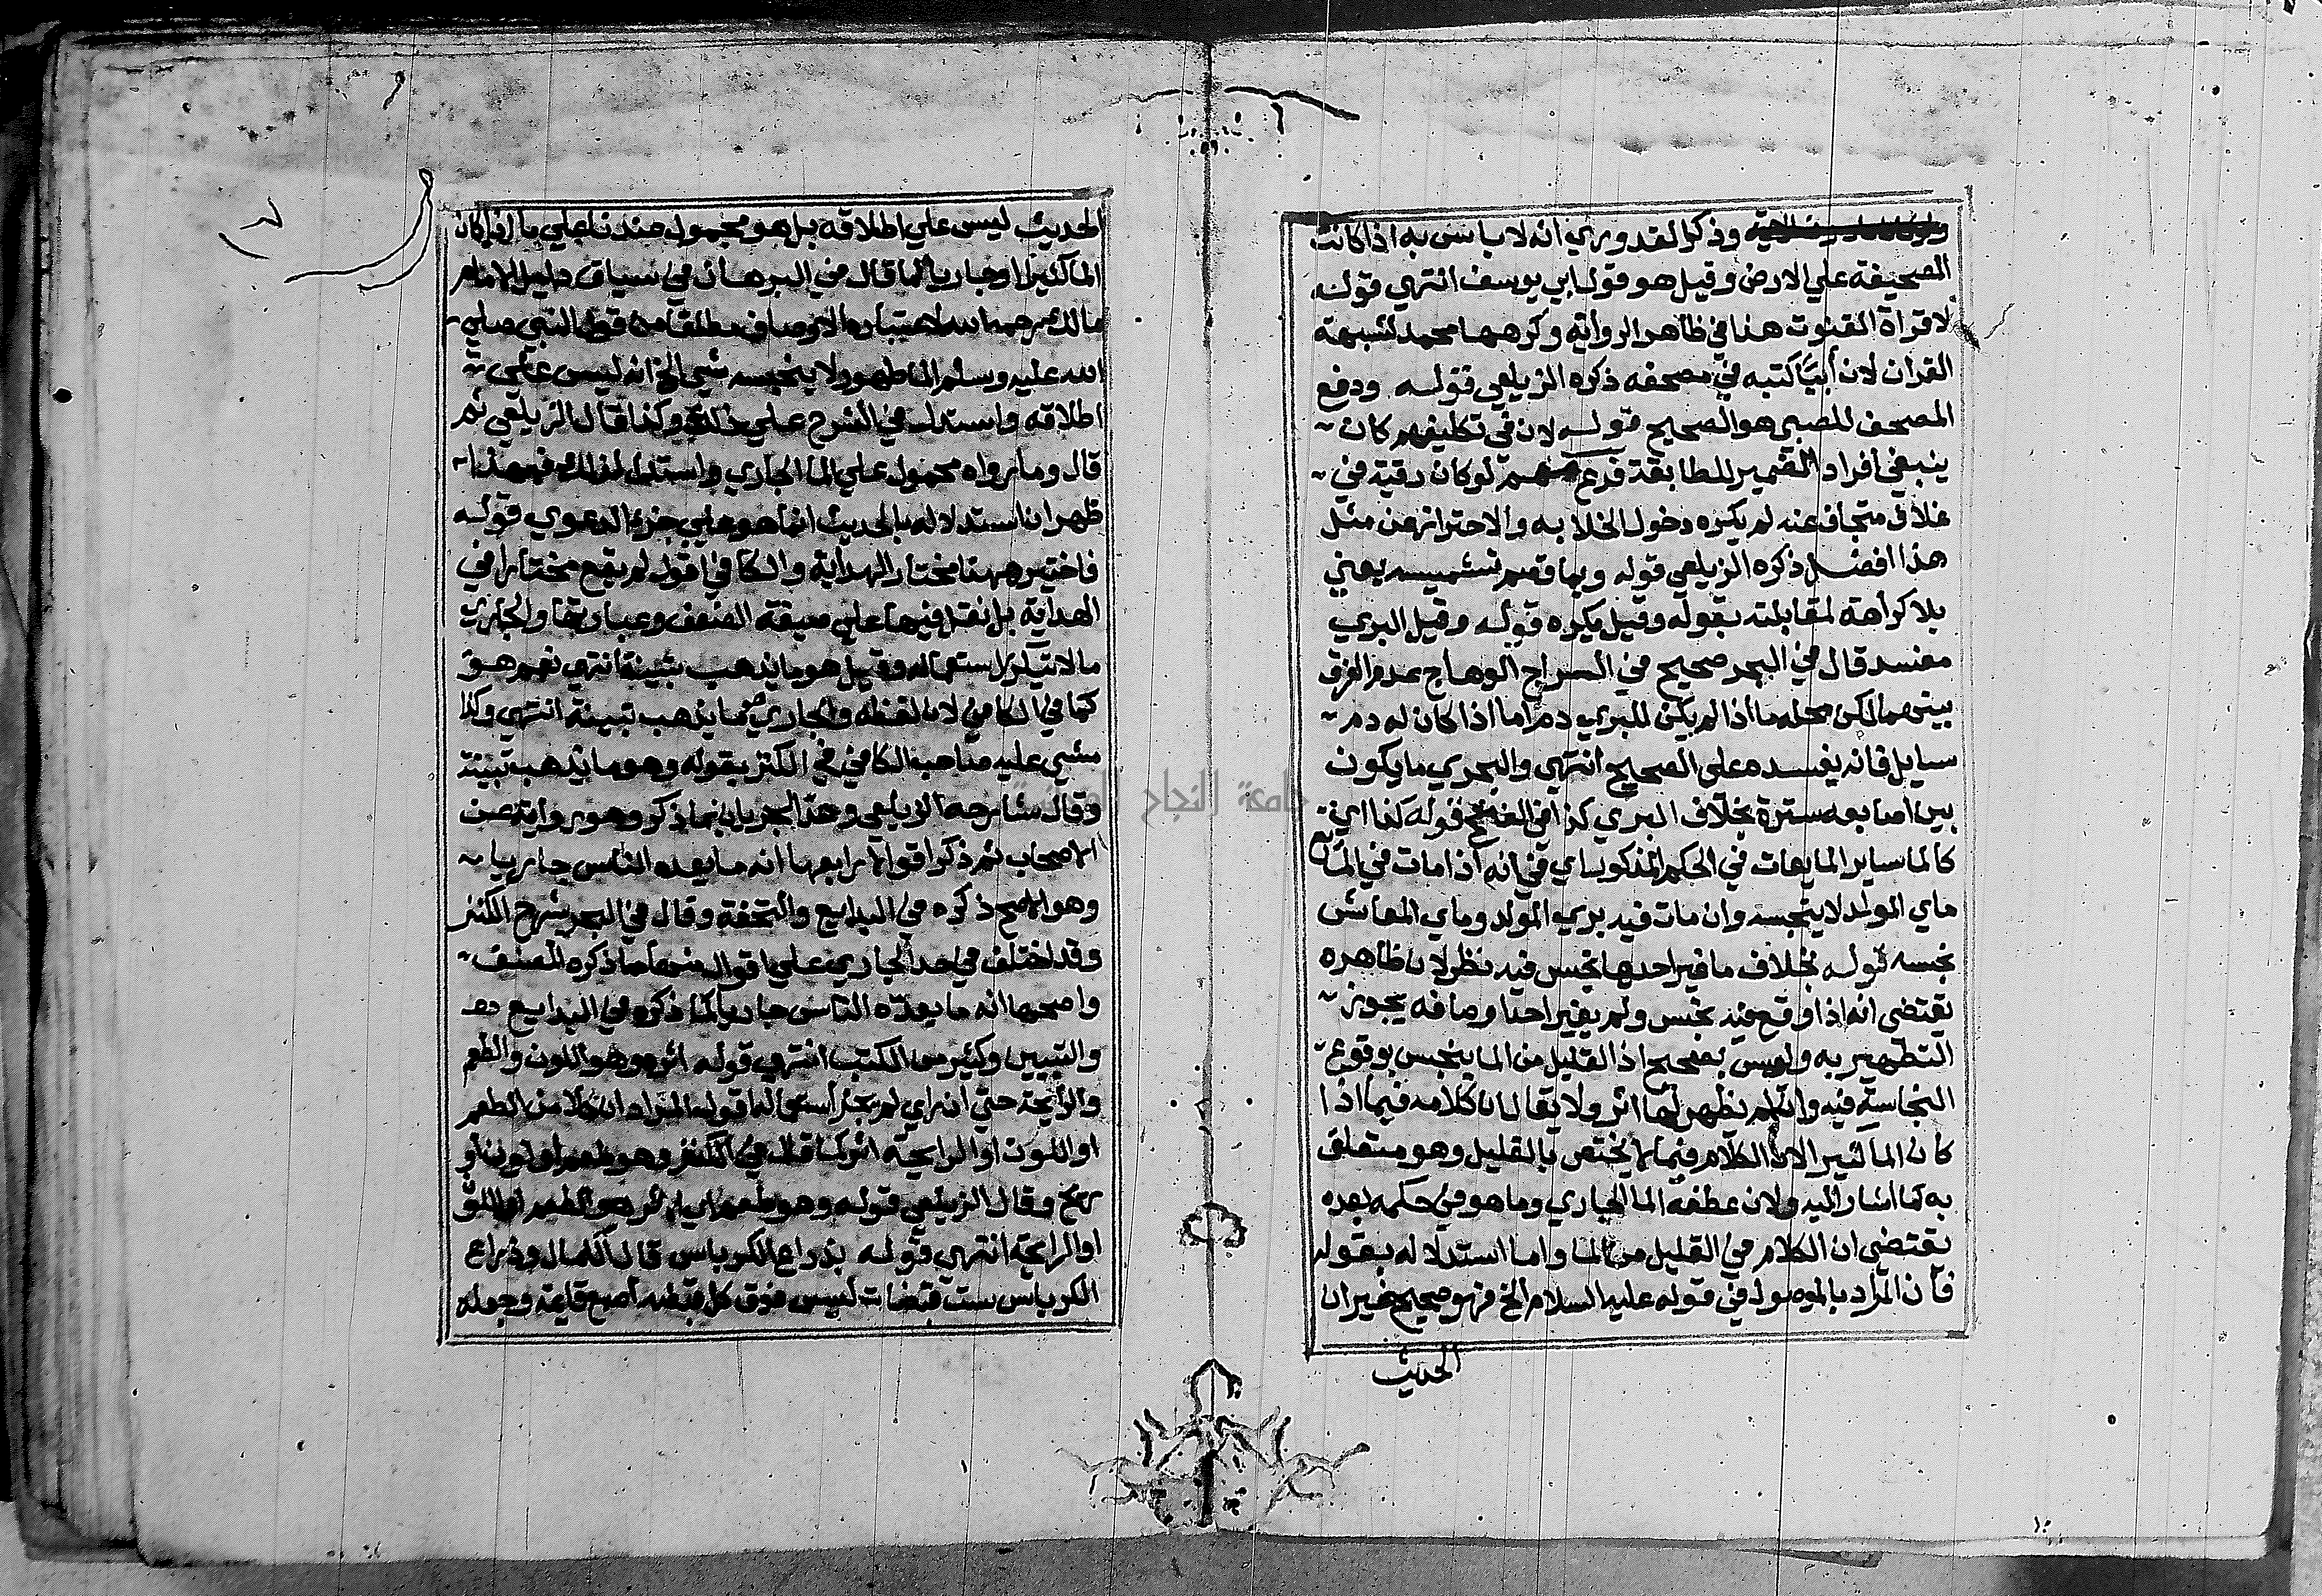 وذكر القدوري انه لا باس به اذا كانت
الصحيفة علي الارض وقيل هو قول ابي يوسف انتهي قوله
لا قراة القنوت هذا في ظاهر الرواية وكرهها محمد لشبهة
القران لان أبيًا كتبه في مصحفه ذكره الزيلعي قوله ودفع
المصحف للصبي هو الصحيح قوله لان في تكليفهم كان
ينبغي افراد الضمير للمطابقة فرع لو كان رقية في
غلاف متجاف عنه لم يكره دخول الخلا به والاحتراز عن مثل
هذا افضل ذكره الزيلعي قوله وبما قصد تشميسه يعني
بلا كراهة لمقابلته بقوله وقيل يكره قوله وقيل البري
مفسد قال في البحر صحيح في السراج الوهاج عدم الفرق
بينهما لكن محله ما اذا لم يكن للبري دم اما اذا كان له دم
سايل فانه يفسده علي الصحيح انتهي والبحري ما يكون
بين اصابعه سترة بخلاف البري كذا في الفتح قوله كذا اي
كالما ساير المايعات في الحكم المذكور اي في انه اذا مات في المايع
ماي المولد لا ينجسه وان مات فيه بري المولد وماي المعاش
نجسه قوله بخلاف ما غير احدها نجس فيه نظر لان ظاهره
يقتضي انه اذا وقع فيه نجس ولم يغير احد اوصافه يجوز
التطهير به وليس بصحيح اذ القليل من الما ينجس بوقوع
النجاسة فيه وان لم يظهر لها اثر ولا يقال ان كلامه فيما اذا
كان الما كثيرا لان الكلام فيما يختص بالقليل وهو متعلق
به كما اشار اليه ولان عطفه الما الجاري وما هو في حكمه بعده
يقتضي ان الكلام في القليل من الما واما استدلاله بقوله
فان المراد بالموصول في قوله عليه السلام الخ فهو صحيح غير ان
الحديث
الحديث ليس علي اطلاقه بل هو محمول عندنا علي ما اذا كان
الما كثيرا او جاريا لما قال في البرهان في سياق دليل الامام
مالك رحمه الله لاعتباره الاوصاف مطلقا من قول النبي صلي
الله عليه وسلم الما طهور لا ينجسه شي الخ انه ليس علي
اطلاقه واستدل في الشرح علي ذلك وكذا قال الزيلعي ثم
قال وما رواه محمول علي الما الجاري واستدل لذلك فبهذا
ظهر ان استدلاله بالحديث انما هو علي جزء الدعوي قوله
فاختير ههنا مختار الهداية والكافي اقول لم يقع مختارا في
الهداية بل نقل فيها علي صيغة الضعف وعبارتها والجاري
ما لا يتكرر استعماله وقيل هو ما يذهب بتبنة انتهي نعم هو
كما في الكافي لان لفظه والجاري ما يذهب بتبنة انتهي وكذا
مشي عليه صاحب الكافي في الكنز بقوله وهو ما يذهب بتبنة
وقال شارحه الزيلعي وحد الجريان بما ذكر وهو رواية عن
الاصحاب ثم ذكر اقوالا رابعها انه ما يعده الناس جاريا
وهو الاصح ذكره في البدايع والتحفة وقال في البحر شرح الكنز
وقد اختلف في حد الجاري علي اقوال منها ما ذكره المصنف
واصحها انه ما يعده الناس جاريا كما ذكره في البدايع
والتبيين وكثير من الكتب انتهي قوله اثره وهو اللون والطعم
والرايحة حتي ان راي لم يجز استعماله اقول المراد ان كلا من الطعم
او اللون او الرايحة اثر كما قال في الكنز وهو طعم او لون او
ريح وقال الزيلعي قوله وهو طعم اي الاثر هو الطعم او اللون
او الرايحة انتهي قوله بذراع الكرباس قال الكمال وذراع
الكرباس ست قبضات ليس فوق كل قبضه اصبع قايمة وجعله